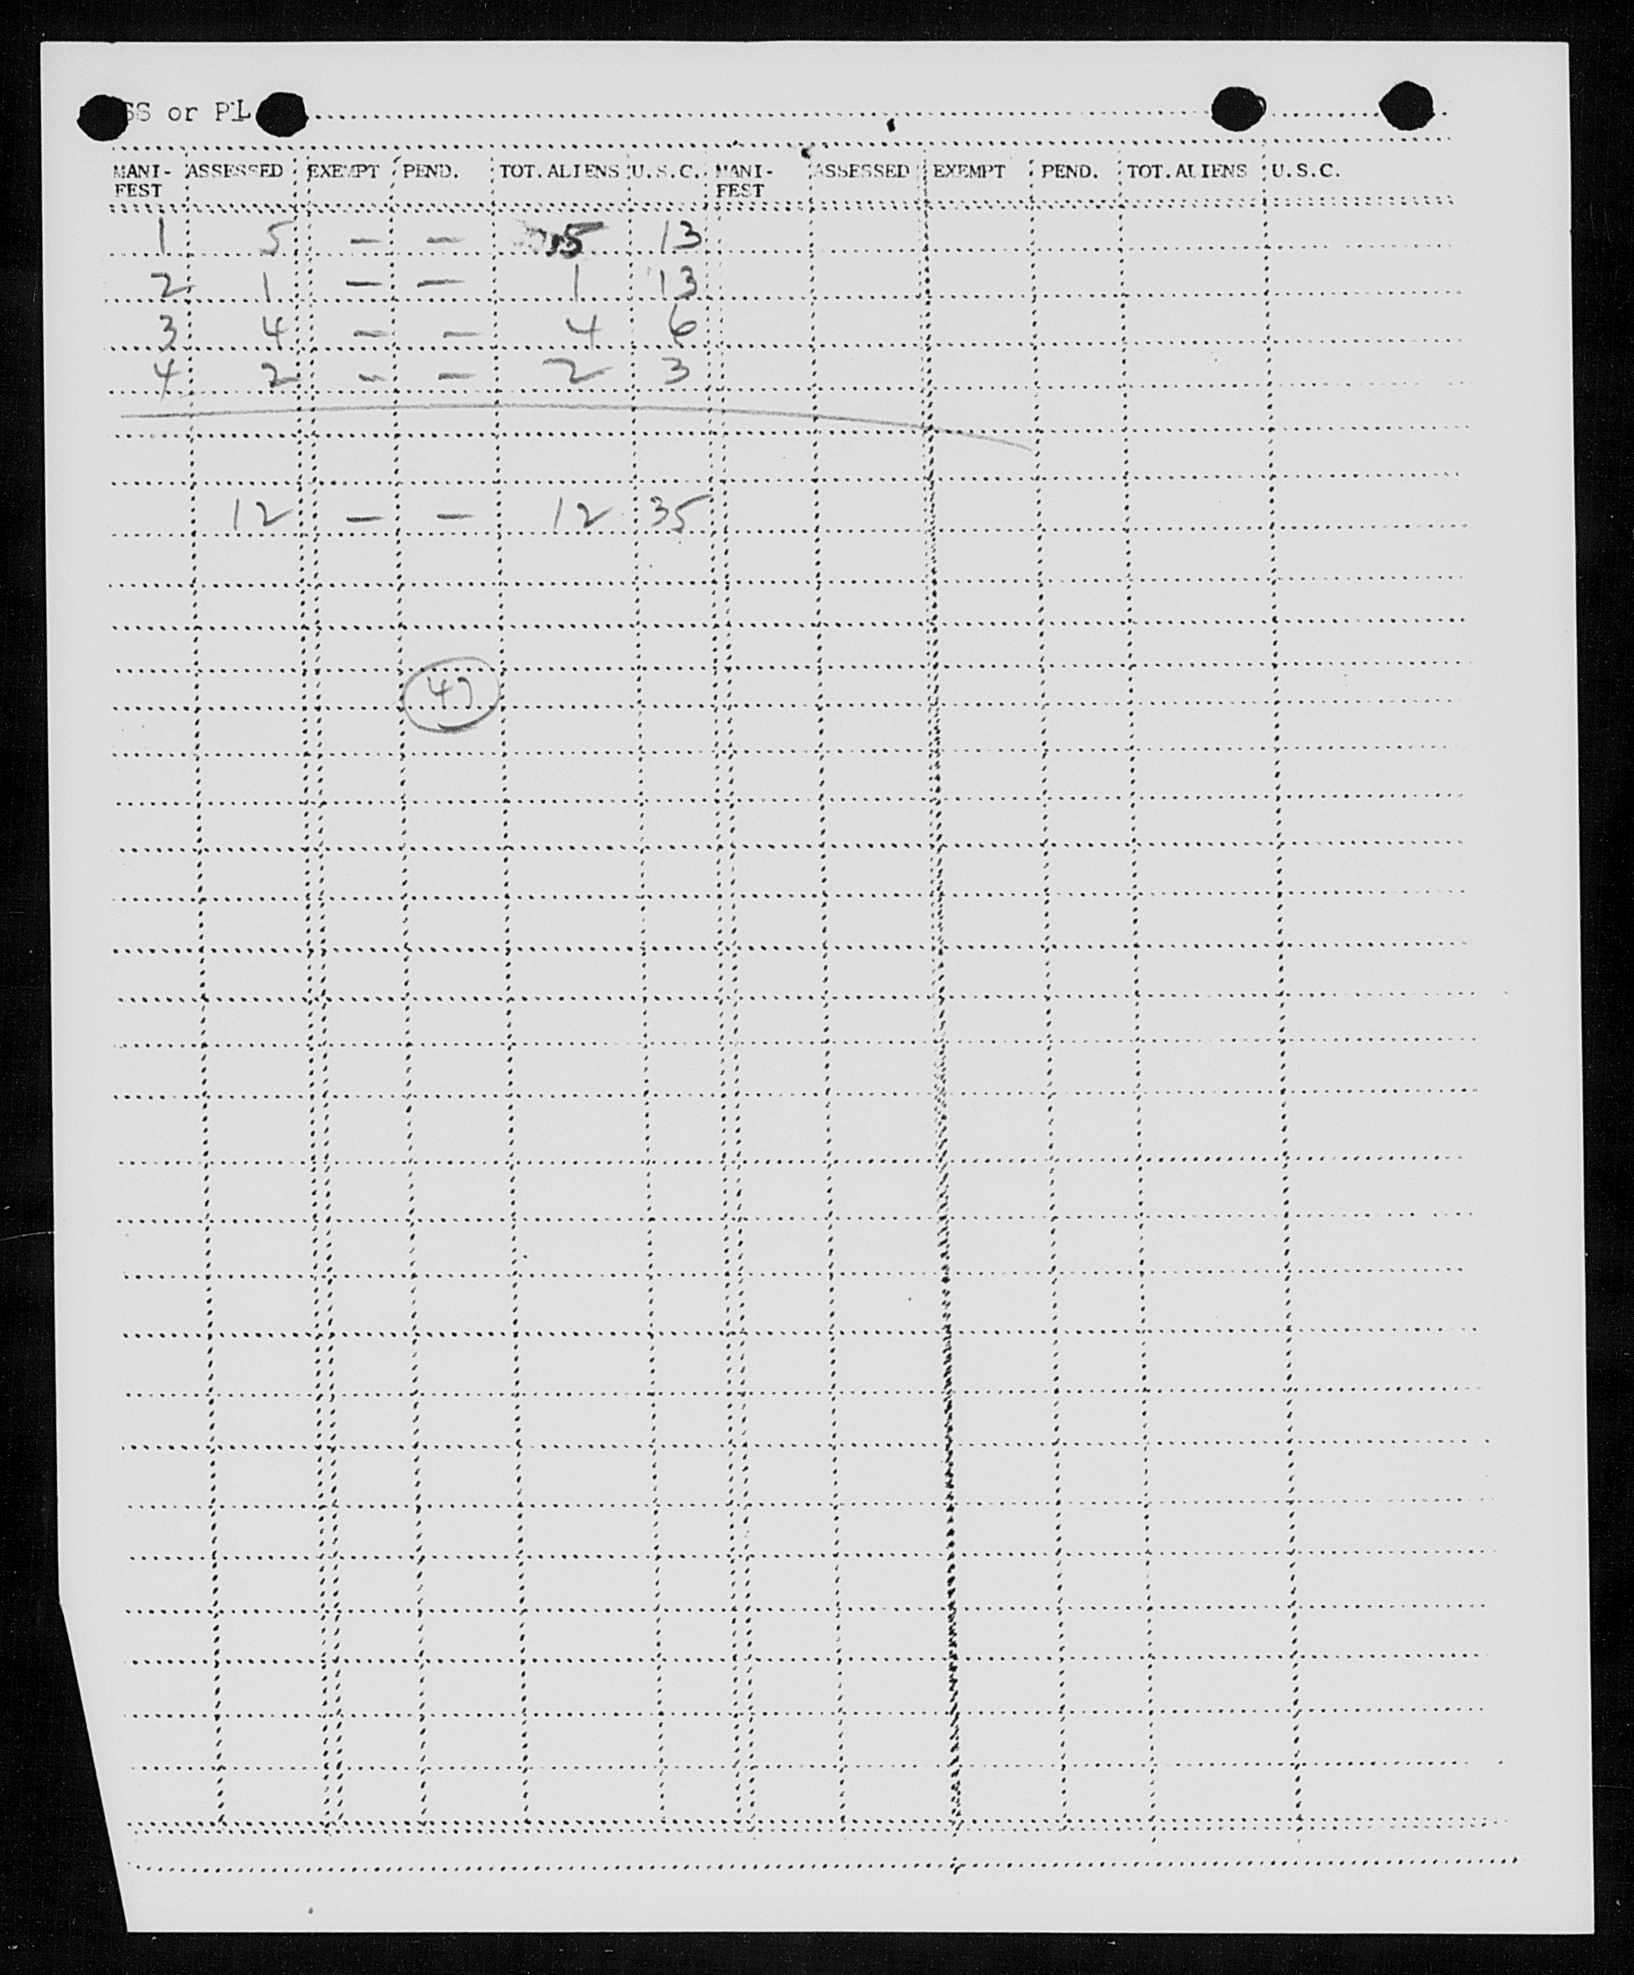 SS or PL
MANI- ASSESSED EXEMPT PEND. TOT. ALIENS U.S.C. MANI- ASSESSED EXEMPT PEND. TOT. ALIENS U.S.C.
FEST FEST
1 5 — — 5 13
2 1 — — 1 13
3 4 — — 4 6
4 2 — — 2 3
12 — — 12 35
47